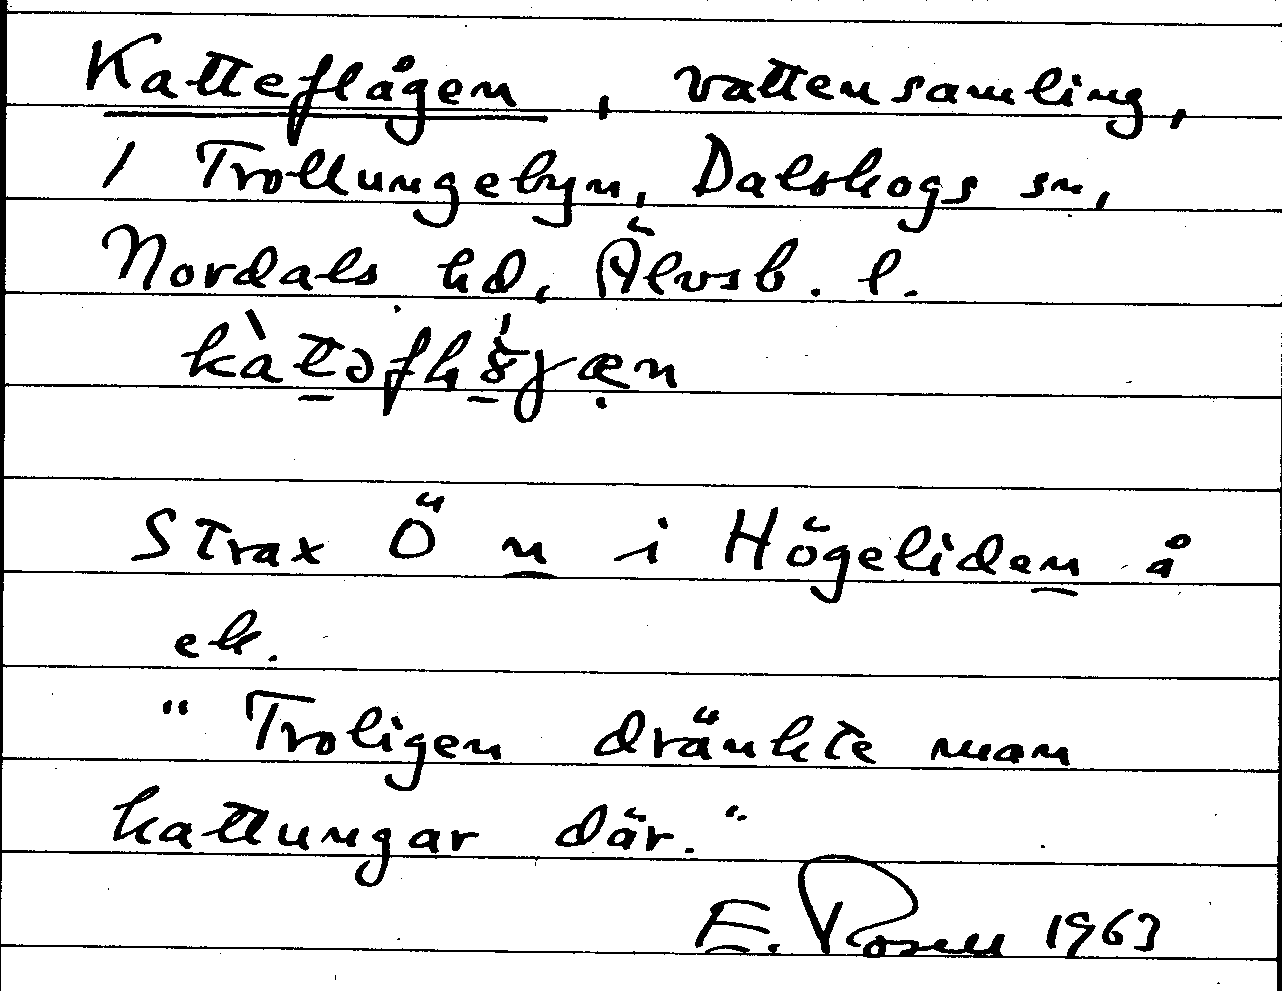 Katteflågen, vattensamling,
1 Trollungebyn, Dalskogs sn,
Nordals hd, Älvsb. l.
Strax Ö n i Högeliden å
ek.
"Troligen dränkte man
kattungar där."
E. Rosell 1963